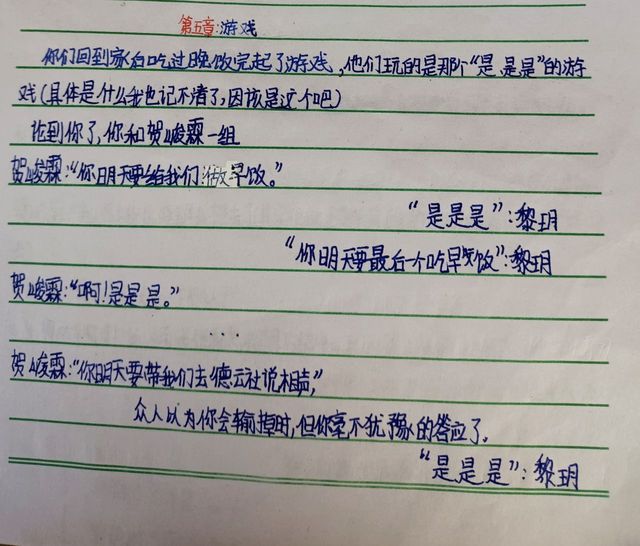 第五章:游戏
你们回到家后吃过晚饭完起了游戏,他们玩的是那个“是是是”的游
戏(具体是什么我也记不清了,因该是这个吧)
论到你了,你和贺峻霖一组
贺峻霖:“你明天要给我们做早饭。”
“是是是”:黎玥
“你明天要最后一个吃早饭”:黎玥
贺峻霖:“啊!是是是。”
...
贺峻霖:“你明天要带我们去德云社说相声,”
众人以为你会输掉时,但你毫不犹豫的答应了。
“是是是”:黎玥